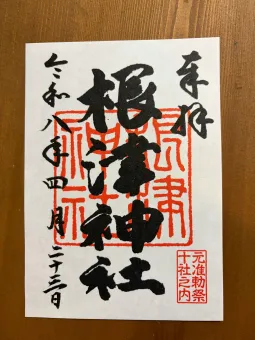 奉拝
根津神社
根津神社
元准勅祭
十社之内
令和八年四月二十三日